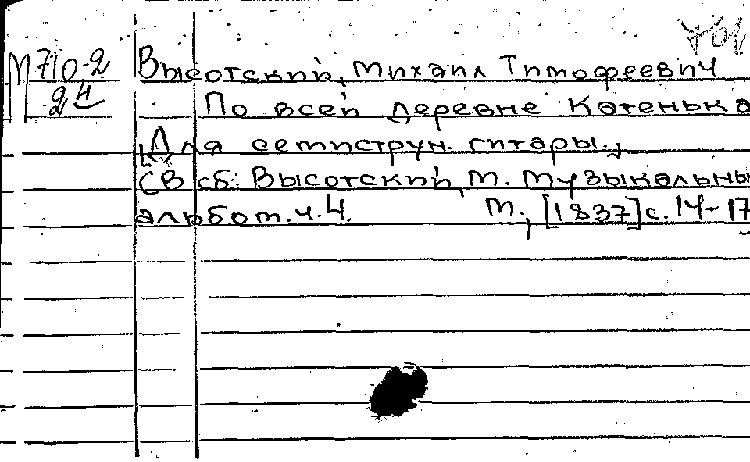 М710-2
24
Высотский, Михаил Тимофеевич
По всей деревне Катенька
[Для семиструн. гитары.]
Св сб: Высотский, М. Музыкальны
альбом. ч. 4. М., [1837] с. 14-17